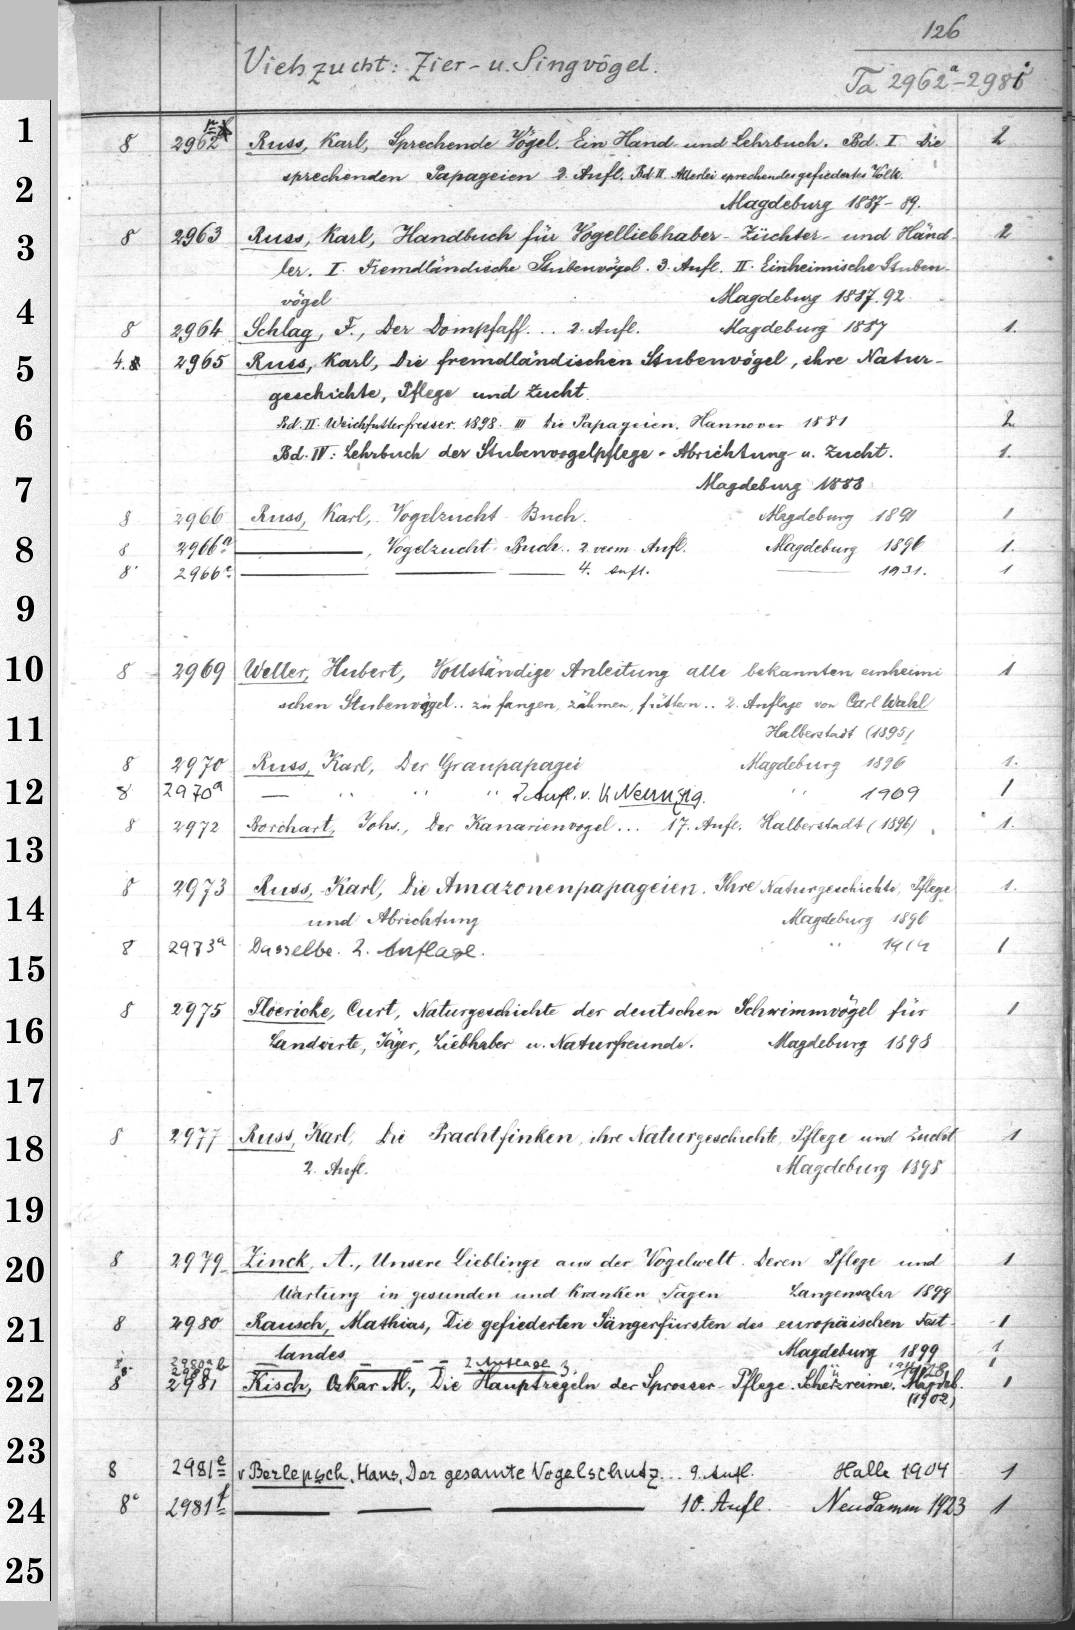 126
Viehzucht: Zier- u. Singvögel.
Ta 2962a-2981
1
8 2962 Russ, Karl, Sprechende Vögel. Ein Hand- und Lehrbuch. Bd. I Die 2
2
sprechenden Papageien 2. Aufl. Bd II. Allerlei sprechendes gefiedertes Volk.
Magdeburg 1887-89.
3
8 2963 Russ, Karl, Handbuch für Vogelliebhaber- Züchter- und Händ- 2
ler. I. Fremdländische Stubenvögel. 3. Aufl. II. Einheimische Stuben-
4
vögel Magdeburg 1887.92
8 2964 Schlag, F., Der Dompfaff... 2. Aufl. Magdeburg 1887 1.
5
4. 2965 Russ, Karl, Die fremdländischen Stubenvögel, ihre Natur-
geschichte, Pflege und Zucht.
6
Bd. II. Weichfutterfresser. 1898. III Die Papageien. Hannover 1881 2
Bd. IV: Lehrbuch der Stubenvogelpflege - Abrichtung- u. Zucht. 1.
7
Magdeburg 1888
8 2966 Russ, Karl, Vogelzucht-Buch. Magdeburg 1891 1
8
8 2966a , Vogelzucht-Buch.. 2. verm. Aufl. Magdeburg 1896 1.
8 2966c 4. Aufl. 1931. 1
9
10
8 2969 Weller, Hubert, Vollständige Anleitung alle bekannten einheimi 1
schen Stubenvögel.. zu fangen, zähmen, füttern.. 2. Auflage von Carl Wahl
11
Halberstadt (1895)
8 2970 Russ, Karl, Der Graupapagei Magdeburg 1896 1.
12
8 2970a — " " " 2. Aufl. v. K. Neunzig. " 1909 1
8 2972 Borchart, Johs., Der Kanarienvogel... 17. Aufl. Halberstadt (1896) 1.
13
8 2973 Russ, Karl, Die Amazonenpapageien. Ihre Naturgeschichte, Pflege 1.
14
und Abrichtung Magdeburg 1896
8 2973a Dasselbe. 2. Auflage. " 1
15
8 2975 Floericke, Curt, Naturgeschichte der deutschen Schwimmvögel für 1
16
Landwirte, Jäger, Liebhaber u. Naturfreunde. Magdeburg 1898
17
8 2977 Russ, Karl, Die Prachtfinken, ihre Naturgeschichte, Pflege und Zucht 1
18
2. Aufl. Magdeburg 1898
19
8 2979 Zinck, A., Unsere Lieblinge aus der Vogelwelt. Deren Pflege und 1
20
Wartung in gesunden und kranken Tagen Langensalza 1899
21
8 2980 Rausch, Mathias, Die gefiederten Sängerfürsten des europäischen Fest- 1
landes Magdeburg 1899 1
2980a b — — — 2. Auflage 3. 1
22
8 2981 Kisch, Oskar M., Die Hauptregeln der Sprosser-Pflege. Scherzreime. Magdeb. 1
(1902)
23
8 2981e v Berlepsch, Hans, Der gesamte Vogelschutz... 9. Aufl. Halle 1904 1
24
8° 2981f 10. Aufl. Neudamm 1923 1
25